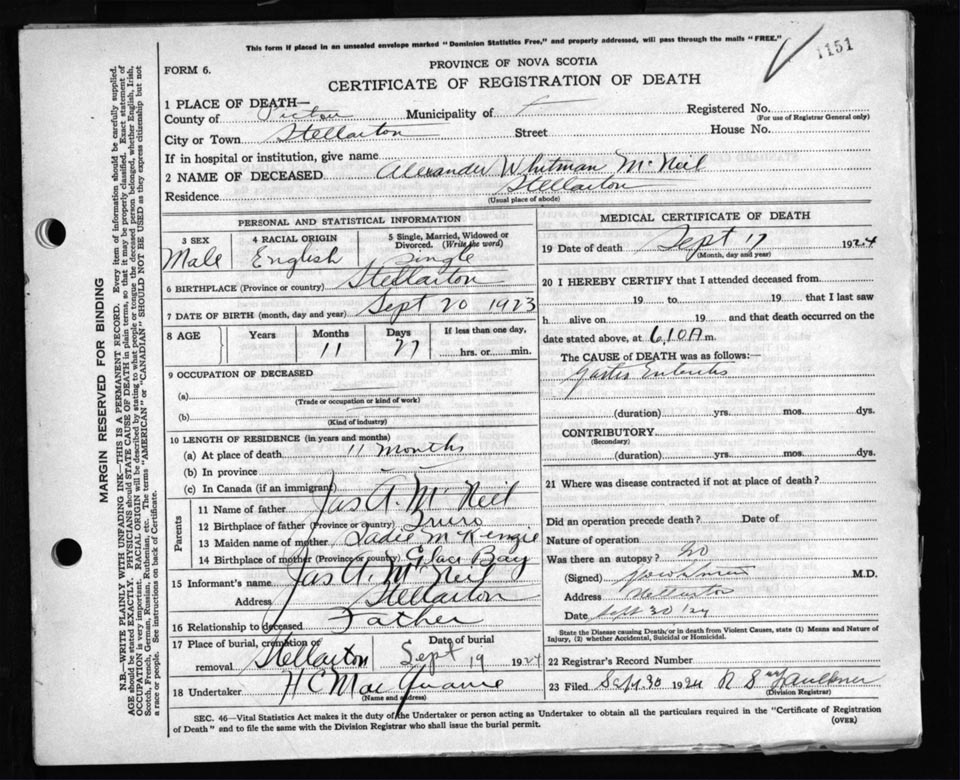 This form if placed in an unsealed envelope marked "Dominion Statistics Free," and properly addressed, will pass through the mails "FREE."
1151
FORM 6.
PROVINCE OF NOVA SCOTIA
CERTIFICATE OF REGISTRATION OF DEATH
1 PLACE OF DEATH—
County of Pictou Municipality of Registered No.
(For use of Registrar General only)
City or Town Stellarton Street House No.
If in hospital or institution, give name
2 NAME OF DECEASED Alexander Whitman McNeil
Residence Stellarton
(Usual place of abode)
PERSONAL AND STATISTICAL INFORMATION
3 SEX 4 RACIAL ORIGIN 5 Single, Married, Widowed or Divorced. (Write the word)
Male English Single
6 BIRTHPLACE (Province or country) Stellarton
7 DATE OF BIRTH (month, day and year) Sept 20 1923
8 AGE Years Months Days If less than one day,
11 27 hrs. or min.
9 OCCUPATION OF DECEASED
(a)
(Trade or occupation or kind of work)
(b)
(Kind of industry)
10 LENGTH OF RESIDENCE (in years and months)
(a) At place of death 11 months
(b) In province
(c) In Canada (if an immigrant)
Parents
11 Name of father Jas A. McNeil
12 Birthplace of father (Province or country) Truro
13 Maiden name of mother Sadie McKenzie
14 Birthplace of mother (Province or country) Glace Bay
15 Informant's name Jas A. McNeil
Address Stellarton
16 Relationship to deceased Father
17 Place of burial, cremation or removal Stellarton Date of burial Sept 19 1924
18 Undertaker H C Mac Quarrie
(Name and address)
MEDICAL CERTIFICATE OF DEATH
19 Date of death Sept 17 1924
(Month, day and year)
20 I HEREBY CERTIFY that I attended deceased from
19 to 19 that I last saw
h alive on 19 and that death occurred on the
date stated above, at 6,10A m.
The CAUSE of DEATH was as follows:
Gastro Enteritis
(duration) yrs. mos. dys.
CONTRIBUTORY
(Secondary)
(duration) yrs. mos. dys.
21 Where was disease contracted if not at place of death?
Did an operation precede death? Date of
Nature of operation
Was there an autopsy? no
(Signed) M.D.
Address Stellarton
Date Sept 30/24
State the Disease causing Death, or in death from Violent Causes, state (1) Means and Nature of Injury, (2) whether Accidental, Suicidal or Homicidal.
22 Registrar's Record Number
23 Filed Sept 30 1924 R S Faulkner
(Division Registrar)
SEC. 46—Vital Statistics Act makes it the duty of the Undertaker or person acting as Undertaker to obtain all the particulars required in the "Certificate of Registration
of Death" and to file the same with the Division Registrar who shall issue the burial permit. (OVER)
MARGIN RESERVED FOR BINDING
N.B.—WRITE PLAINLY WITH UNFADING INK—THIS IS A PERMANENT RECORD. Every item of information should be carefully supplied.
AGE should be stated EXACTLY. PHYSICIANS should STATE CAUSE OF DEATH in plain terms, so that it may be properly classified. Exact statement of
OCCUPATION is very important. RACIAL ORIGIN will be described by stating to what people or tongue the deceased person belonged, whether English, Irish,
Scotch, French, German, Russian, Ruthenian, etc. The terms "AMERICAN" or "CANADIAN" SHOULD NOT BE USED as they express citizenship but not
a race or people. See instructions on back of Certificate.